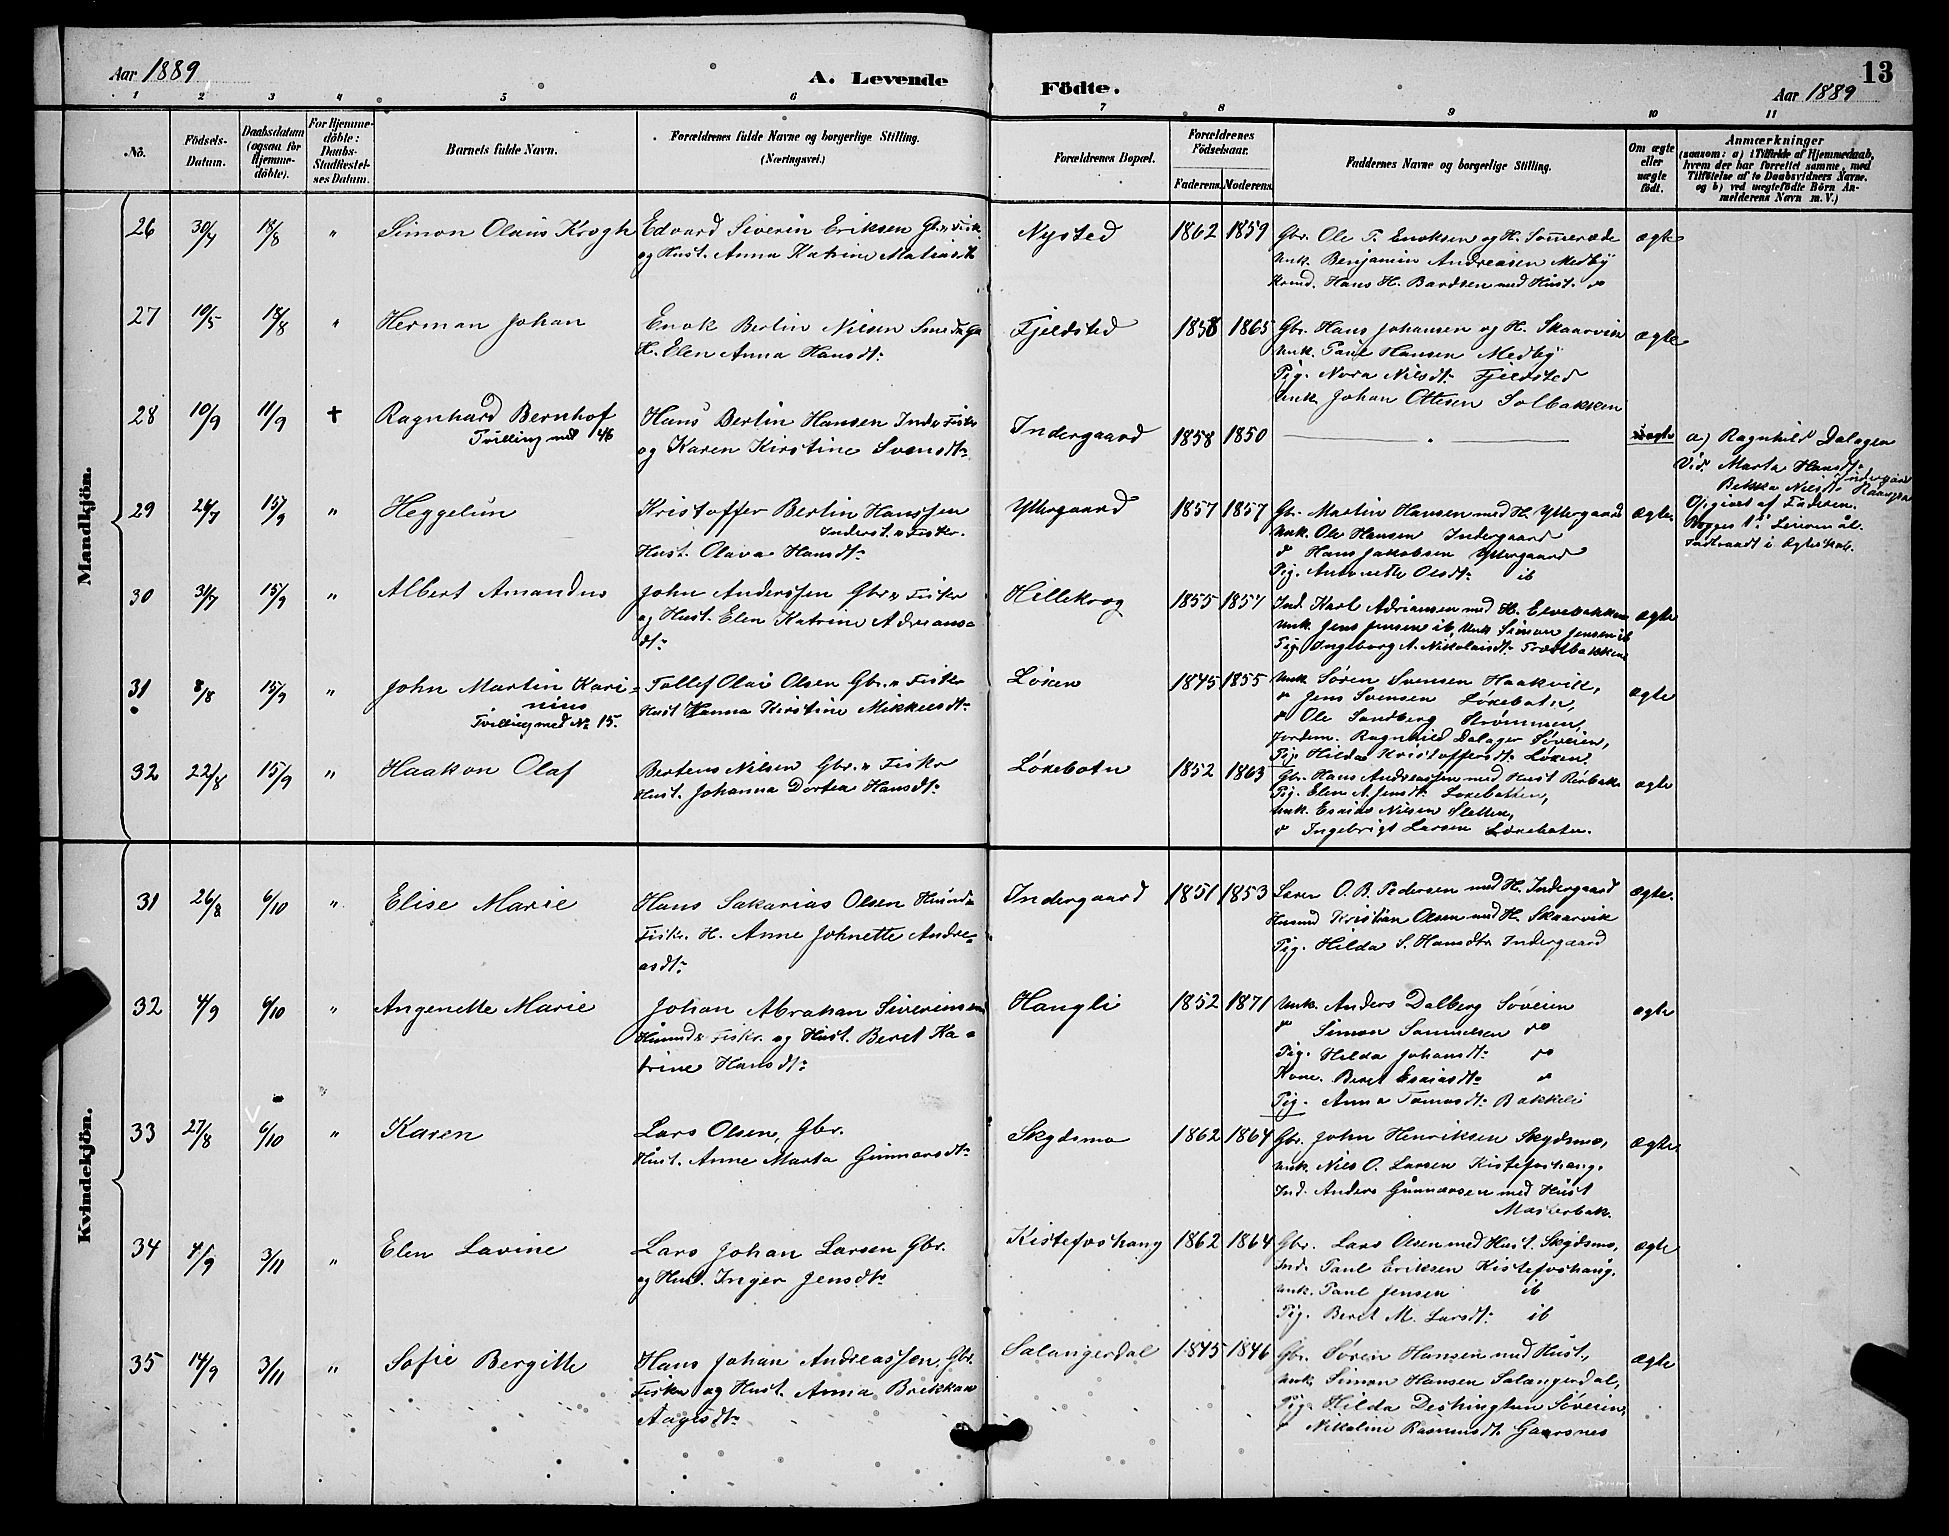 Aar 1889
A. Levende Födte.
13
Aar 1889
1 2 3 4 5 6 7 8 9 10 11
No.
Födsels-Datum.
Daabsdatum (ogsaa for Hjemme-döbte).
For Hjemme-döbte: Daabs-Stadfæstel-ses Datum.
Barnets fulde Navn.
Forældrenes fulde Navne og borgerlige Stilling. (Næringsvei.)
Forældrenes Bopæl.
Forældrenes Födselsaar.
Faderens. Moderens.
Faddernes Navne og borgerlige Stilling.
Om ægte eller uægte födt.
Anmærkninger
(saasom: a) i Tilfælde af Hjemmedaab, hvem der har forrettet samme, med Tilföielse af to Daabsvidners Navne. og b) ved uægtefödte Börn An-melderens Navn m. V.)
Mandkjön.
26 30/7 18/8 " Simon Olaus Krogh
Edvard Siverin Eriksen Gbr. & Fisk.
og Hust. Anna Katrine
Nysted 1862 1859
Gbr. Ole P. Enoksen og H.
Unk. Benjamin Andreasen Medby
Hans H. Bardsen med Hust. do
ægte
27 10/5 18/8 " Herman Johan
Enok Berlin Nilsen
H. Elen Anna Hansdtr
Fjeldsted 1858 1865
Gbr. Hans Johansen og H. Skaarvik
Unk. Paul Hansen Medby
Pig. Nora Nilsdtr Fjeldsted
Unk. Johan Ottesen Solbakken
ægte
28 10/9 11/9 † Ragnhard Bernhof
Tvilling med 46
Hans Berlin Hansen Inds. Fisker
og Karen Kirstine Svensdtr
Indergaard 1858 1850
a) Ragnhild Dalager
Vid. Marta Hansdtr Indergaard
Bekka Nilsdtr
Opgivet af Faderen.
29 26/7 15/9 " Heggelun
Kristoffer Berlin Hanssen
Inderst. & Fisker.
Hust. Olava Hansdtr
Yttergaard 1857 1857
Gbr. Martin Hansen med H. Yttergaard
Unk. Ole Hansen Indergaard
do Hans Jakobsen Yttergaard
Pig. Antonette Olsdtr ib
ægte
Begges 1ste Leiermål.
Indtraadt i Ægteskab.
30 31/7 15/9 " Albert Amandus
John Anderssen Gbr. & Fisker
og Hust. Elen Katrine Adrians-
dtr
Hillekrog 1855 1857
Ind. Karl Adriansen med H. Elvebakken
Unk. Jens Jensen ib, Unk Simon Jensen ib
Pig. Ingeborg A. Nikolaisdtr
ægte
31 8/8 15/9 " John Martin Kari-
nius
Tvilling med No 15.
Tollef Olai Olsen Gbr. & Fisker
Hust Hanna Kirstine Mikkelsdtr
Löken 1845 1855
Unk Sören Svensen Haakvik,
do Jens Svensen Löxebotn,
do Ole Sandberg Strömmen,
Jordem. Ragnhild Dalager Söveien,
Pig. Hilda Kristoffersdtr Löxen.
ægte
32 22/8 15/9 " Haakon Olaf
Bertens Nilsen Gbr. & Fisker
Hust. Johanna Dortea Hansdtr
Löxebotn 1852 1863
Gbr. Hans Andreassen med Hust
Pig. Elen A. Jensdtr Löxebotten,
Unk. Esaias Nilsen Sletten,
do Ingebrigt Larsen Löxebotn.
ægte
Kvindekjön.
31 26/8 6/10 " Elise Marie
Hans Sakarias Olsen Husmd &
Fisker. H. Anne Johnette Andre-
asdtr
Indergaard 1851 1853
Lærer O. B. Pedersen med H. Indergaard
Husmd Kristian Olsen med H. Skaarvik
Pig. Hilda S. Hansdtr Indergaard
ægte.
32 4/9 6/10 " Angenette Marie
Johan Abrahan Siverinsen
Husmd & Fisker. og Hust. Beret Ka-
trine Hansdtr
Hangli 1852 1871
Unk. Anders Dalberg Söveien
do Simon Samuelsen do
Pig. Hilda Johansdtr do
Kone. Beret Esaiasdtr do
Pig. Anna Tomasdtr Bakkeli
ægte
33 27/8 6/10 " Karen
Lars Olsen, Gbr.
Hust. Anne Marta Gunnarsdtr
Skydsmo 1862 1864
Gbr. John Henriksen Skydsmo,
Unk. Nils O. Larsen Kistefoshaug.
Ind. Anders Gunnarsen med Hust
Masterbak.
ægte
34 4/9 3/11 " Elen Lavine
Lars Johan Larsen Gbr.
og Hust. Inger Jensdtr
Kistefoshaug 1862 1864
Gbr. Lars Olsen med Hust. Skydsmo,
Ind. Paul Eriksen Kistefoshaug.
Unk. Paul Jensen ib
Pig. Beret M. Larsdtr ib
ægte
35 14/9 3/11 " Sofie Bergitte
Hans Johan Andreassen, Gbr.
Fisker og Hust. Anna Brekkan
Aagesdtr
Salangerdal 1845 1846
Gbr. Sören Hansen med Hust,
Unk. Simon Hansen Salangerdal,
Pig. Hilda Deshington Söveien,
do Nikoline Rasmusdtr Gaarsnes
ægte